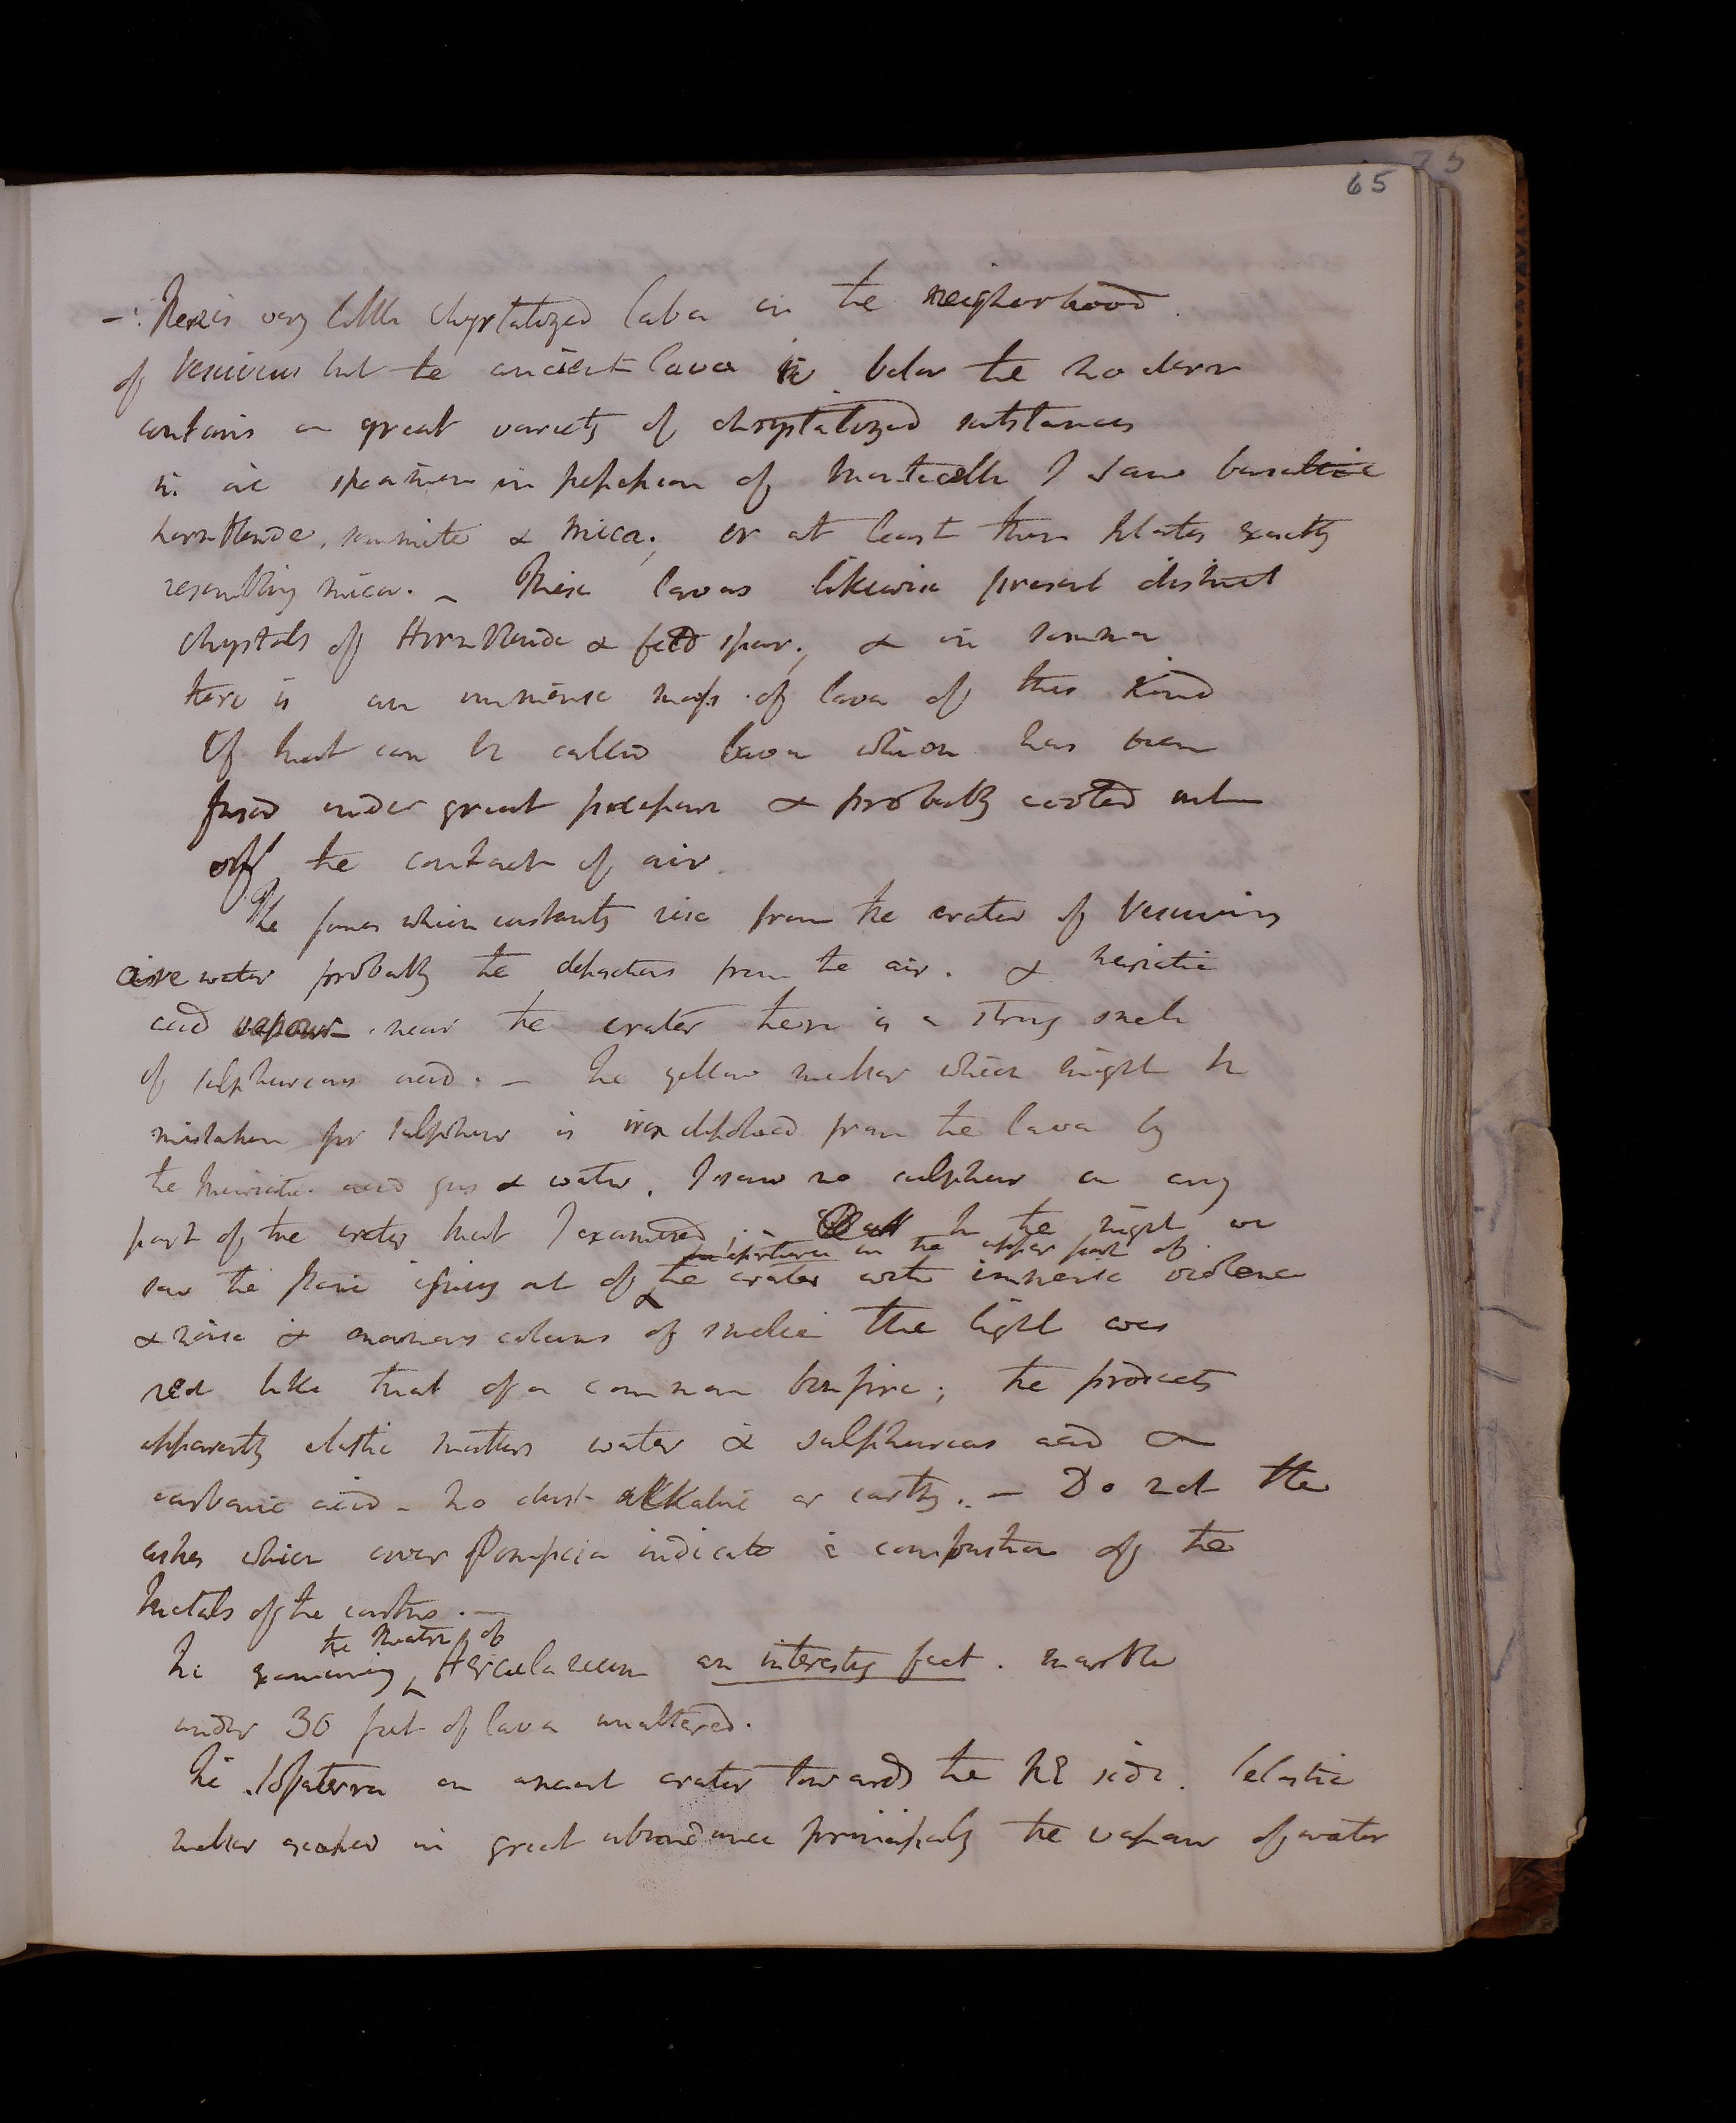 65
- There is very little chrystalized lava in the neighborhood
of Vesuvius but the ancient lava is below the modern
contains a great variety of chrystalized substances
in specimen in possession of Monticelli I saw basaltic
hornblende, sommite & mica; or at least thin plates exactly
resembling mica. - These lavas likewise present distinct
chrystals of Hornblende & feldspar; & in somma
there is an immense mass of lava of this kind
If that can be called lava which has been
fused under great pressure & probably cooled out
off the contact of air.
The fumes which constantly rise from the crater of Vesuvius
are water probably the from the air. & muriatic
acid vapour near the crater there is a strong smell
of sulphureous acid. - the yellow matter which might be
mistaken for sulphur is iron deposed from the lava by
the muriatic acid gas & water. I saw no sulphur on any
part of the crater that I examined; - In the night we
an aperture in the upper part of
saw the flame issuing out of the crater with immense violence
& noise & enormous colums of smoke the light was
red like that of a common bonfire; the products
apparently elastic matters water & sulphureous acid &
carbonic acid - no dust alkaline or earthy. - Do not the
ashes which cover Pompeia indicate a combustion of the
metals of the earths. -
the theatre of
In examining Herculaneum an interestg fact. marble
under 30 feet of lava unaltered.
The solfaterra an ancient crater towards the NE side. elastic
matter escaped in great abundance principally the vapour of water